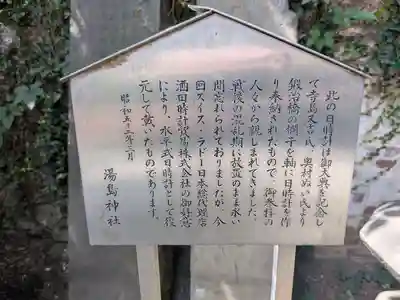 此の日時計は御大典を記念し
て寺島又吉氏、奥村ぬい氏より
鍛冶橋の欄干を軸に日時計を作
り奉納されたもので、御参拝の
人々から親しまれてきました。
戦後の混乱期に放置のまま永い
間忘れられておりましたが、今
回スイス・ラドー日本総代理店
酒田時計貿易株式会社の御好意
により、水平式日時計として復
元して戴いたものであります。
昭和五十二年二月
湯島神社